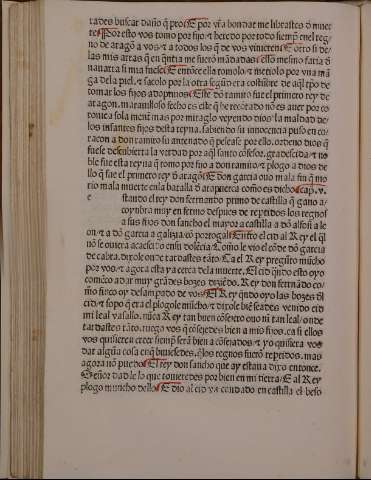 tades buscar daño q̃ pro. E por v̄ra bondat me librastes d̄ muer
te. Por esto vos tomo por fijo ⁊ heredo por todo siemp̄ enel reg
no de aragõ a vos ⁊ a todos los q̃ de vos vinieren. E otro si de
las mis arras q̃ en q̃ntia me fuerõ mãdadas ello mesmo faria d̄
nauarra si mia fuese. E entõce ella tomolo ⁊ metiolo por vna mã
ga dela piel ⁊ sacolo por la otra segũd era costũbre de aq̃l tp̃o de
tomar los fijos adoptiuos. Este dõ ramiro fue el primero rey de
aragon. marauilloso fecho es este q̃ he recõtado nõ es auer por co
ronica sola ment mas por miraglo veyendo dios la maldad de
los infantes fijos desta reyna. sabiendo su innocencia puso en co
racon a don ramiro su antenado q̃ pelease por ello. ordeno dios q̃
fuese descubierta la verdad por aq̃l santo cõfesor. gradescida ⁊ no
ble fue esta reyna q̃ tomo por fijo a don ramiro. ⁊ plogo a dios de
llo q̃ fue el primero rey d̄ aragõ. E don garcia ouo mala fin q̃ mo
rio mala muerte enla batalla d̄ atapuerca como es dicho. cap̃. v.
e stando el rey don fernando primo de castilla q̃ gano a
coynbra muy enfermo despues de repartidos los regnos
a sus fijos don sancho el mayor a castilla a dõ alfonso le
on ⁊ a dõ garcia a galizia cõ portogal. Entro el cid al Rey el q̃l
nõ se ouiera acaescido ensu dolẽcia. Como le vio el cõde dõ garcia
de cabra. dixole onde tardastes tãto. Ca el Rey pregũto mũcho
por vos ⁊ agora esta ya cerca dela muerte. El cid q̃ndo esto oyo
comẽco adar muy grãdes bozes dizẽdo. Rey don fernãdo co
mo finco oy desanparado de vos. El Rey q̃ndo oyo las bozes dl
cid ⁊ sopo q̃ era el plogole mũcho ⁊ dixole biẽ seades venido cid
mi leal vasallo. nũca Rey tan buen cõsejero ouo ni tan leal. onde
tardastes tãto. ruego vos q̃ cõsejedes bien a mis fijos. ca si ellos
vos quisieren creer siemp̄ serã bien a cõsejados ⁊ yo quisiera vos
dar algũa cosa enq̃ biuiesedes. q̃ los regnos fuerõ repartidos. mas
agora nõ puedo. El rey don sancho que ay estaua dixo entonce.
Señor dad le lo que touieredes por bien en mi tierra. E al Rey
plogo muncho dello. E dio al cid vn condado en castilla el beso